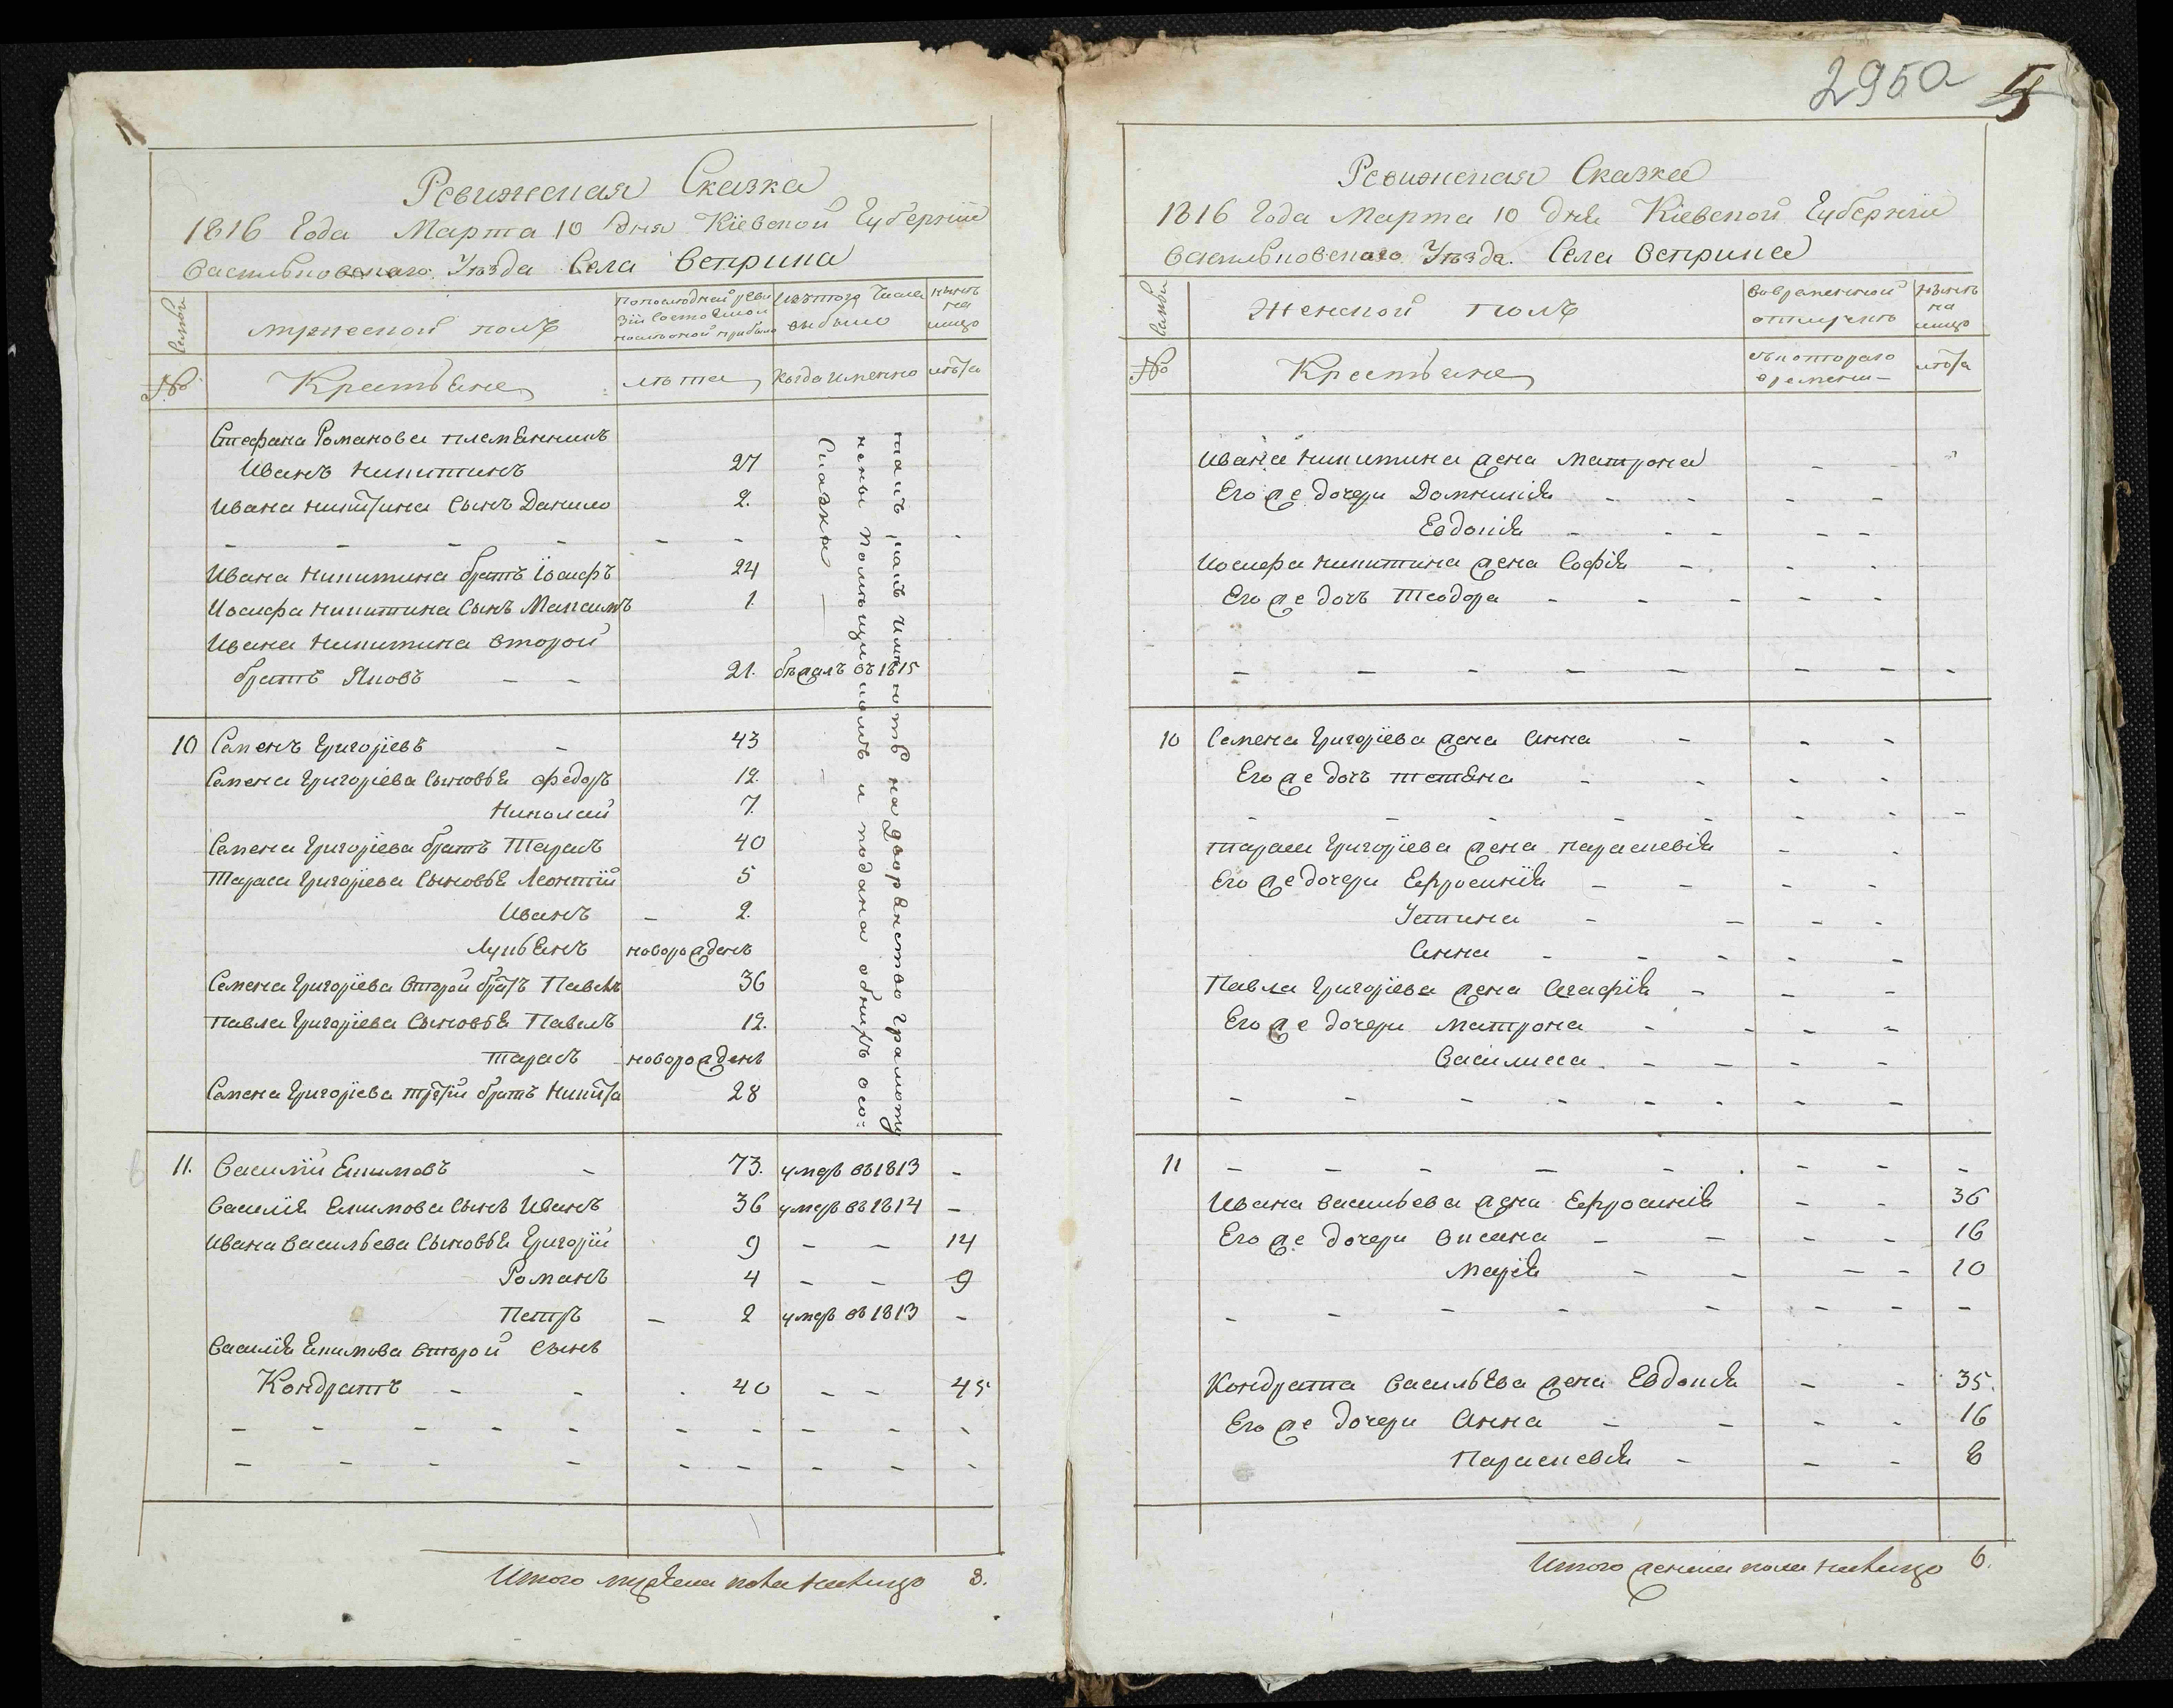 2950
Ревижская Сказка
1816 Года Марта 10 дня Кіевской Губерніи
Васильковскаго Уезда Села Веприка
Семьи
мужеской полъ
По последней реви
зіи состояло и
после оной прибыло
Изъ того числа
выбыло
ныне
на
лицо
№
Крестьяне
лета
Когда именно
лета
Стефана Романова племянникъ
Иванъ Никитинъ 27
Ивана Никитина Сынъ Данило 2.
Ивана Никитина братъ Іосифъ 24
Иосифа Никитина Сынъ Максимъ 1.
Ивана Никитина второй
братъ Яковъ 21. бежалъ въ 1815
10 Семенъ Григоріевъ 43
Семена Григоріева Сыновья Федоръ 12.
Николай 7.
Семена Григоріева братъ Тарасъ 40
Тараса Григоріева Сыновья Леонтій 5
Иванъ 2.
Лукьянъ новорожденъ
Семена Григоріева второй братъ Павелъ 36
Павла Григоріева Сыновья Павелъ 12.
Тарасъ новорожденъ
Семена Григоріева третій братъ Никита 28
такъ какъ имеютъ на дворянство грамоту
нены помещикомъ и подана объ нихъ осо:
Сказка
11. Василій Екимовъ 73. умеръ въ 1813
Василія Екимова Сынъ Иванъ 36 умеръ въ 1814
Ивана Васильева Сыновья Григорій 9 14
Романъ 4 9
Петръ 2 умеръ въ 1813
Василія Екимова второй Сынъ
Кондратъ 40 45
Итого мужеска пола налицо 3.
Ревижская Сказка
1816 Года Марта 10 дня Кіевской Губерніи
Васильковскаго Уезда. Села Веприка
Семьи
Женской полъ
Во временной
отлучке
ныне
на
лицо
№
Крестьяне
съ котораго
времени
лета
Ивана Никитина жена Матрона
Его же дочери Домникія
Евдокія
Иосифа Никитина жена Софія
Его же дочь Теодора
10 Семена Григоріева жена Анна
Его же дочь Татяна
Тараса Григоріева жена Параскевія
Его же дочери Ефросинія
Устина
Анна
Павла Григоріева жена Агафія
Его же дочери Матрона
Василиса
11
Ивана Васильева жена Ефросинія 36
Его же дочери Оксана 16
Марія 10
Кондрата Васильева жена Евдокія 35.
Его же дочери Анна 16
Параскевія 6
Итого женска пола налицо 6.